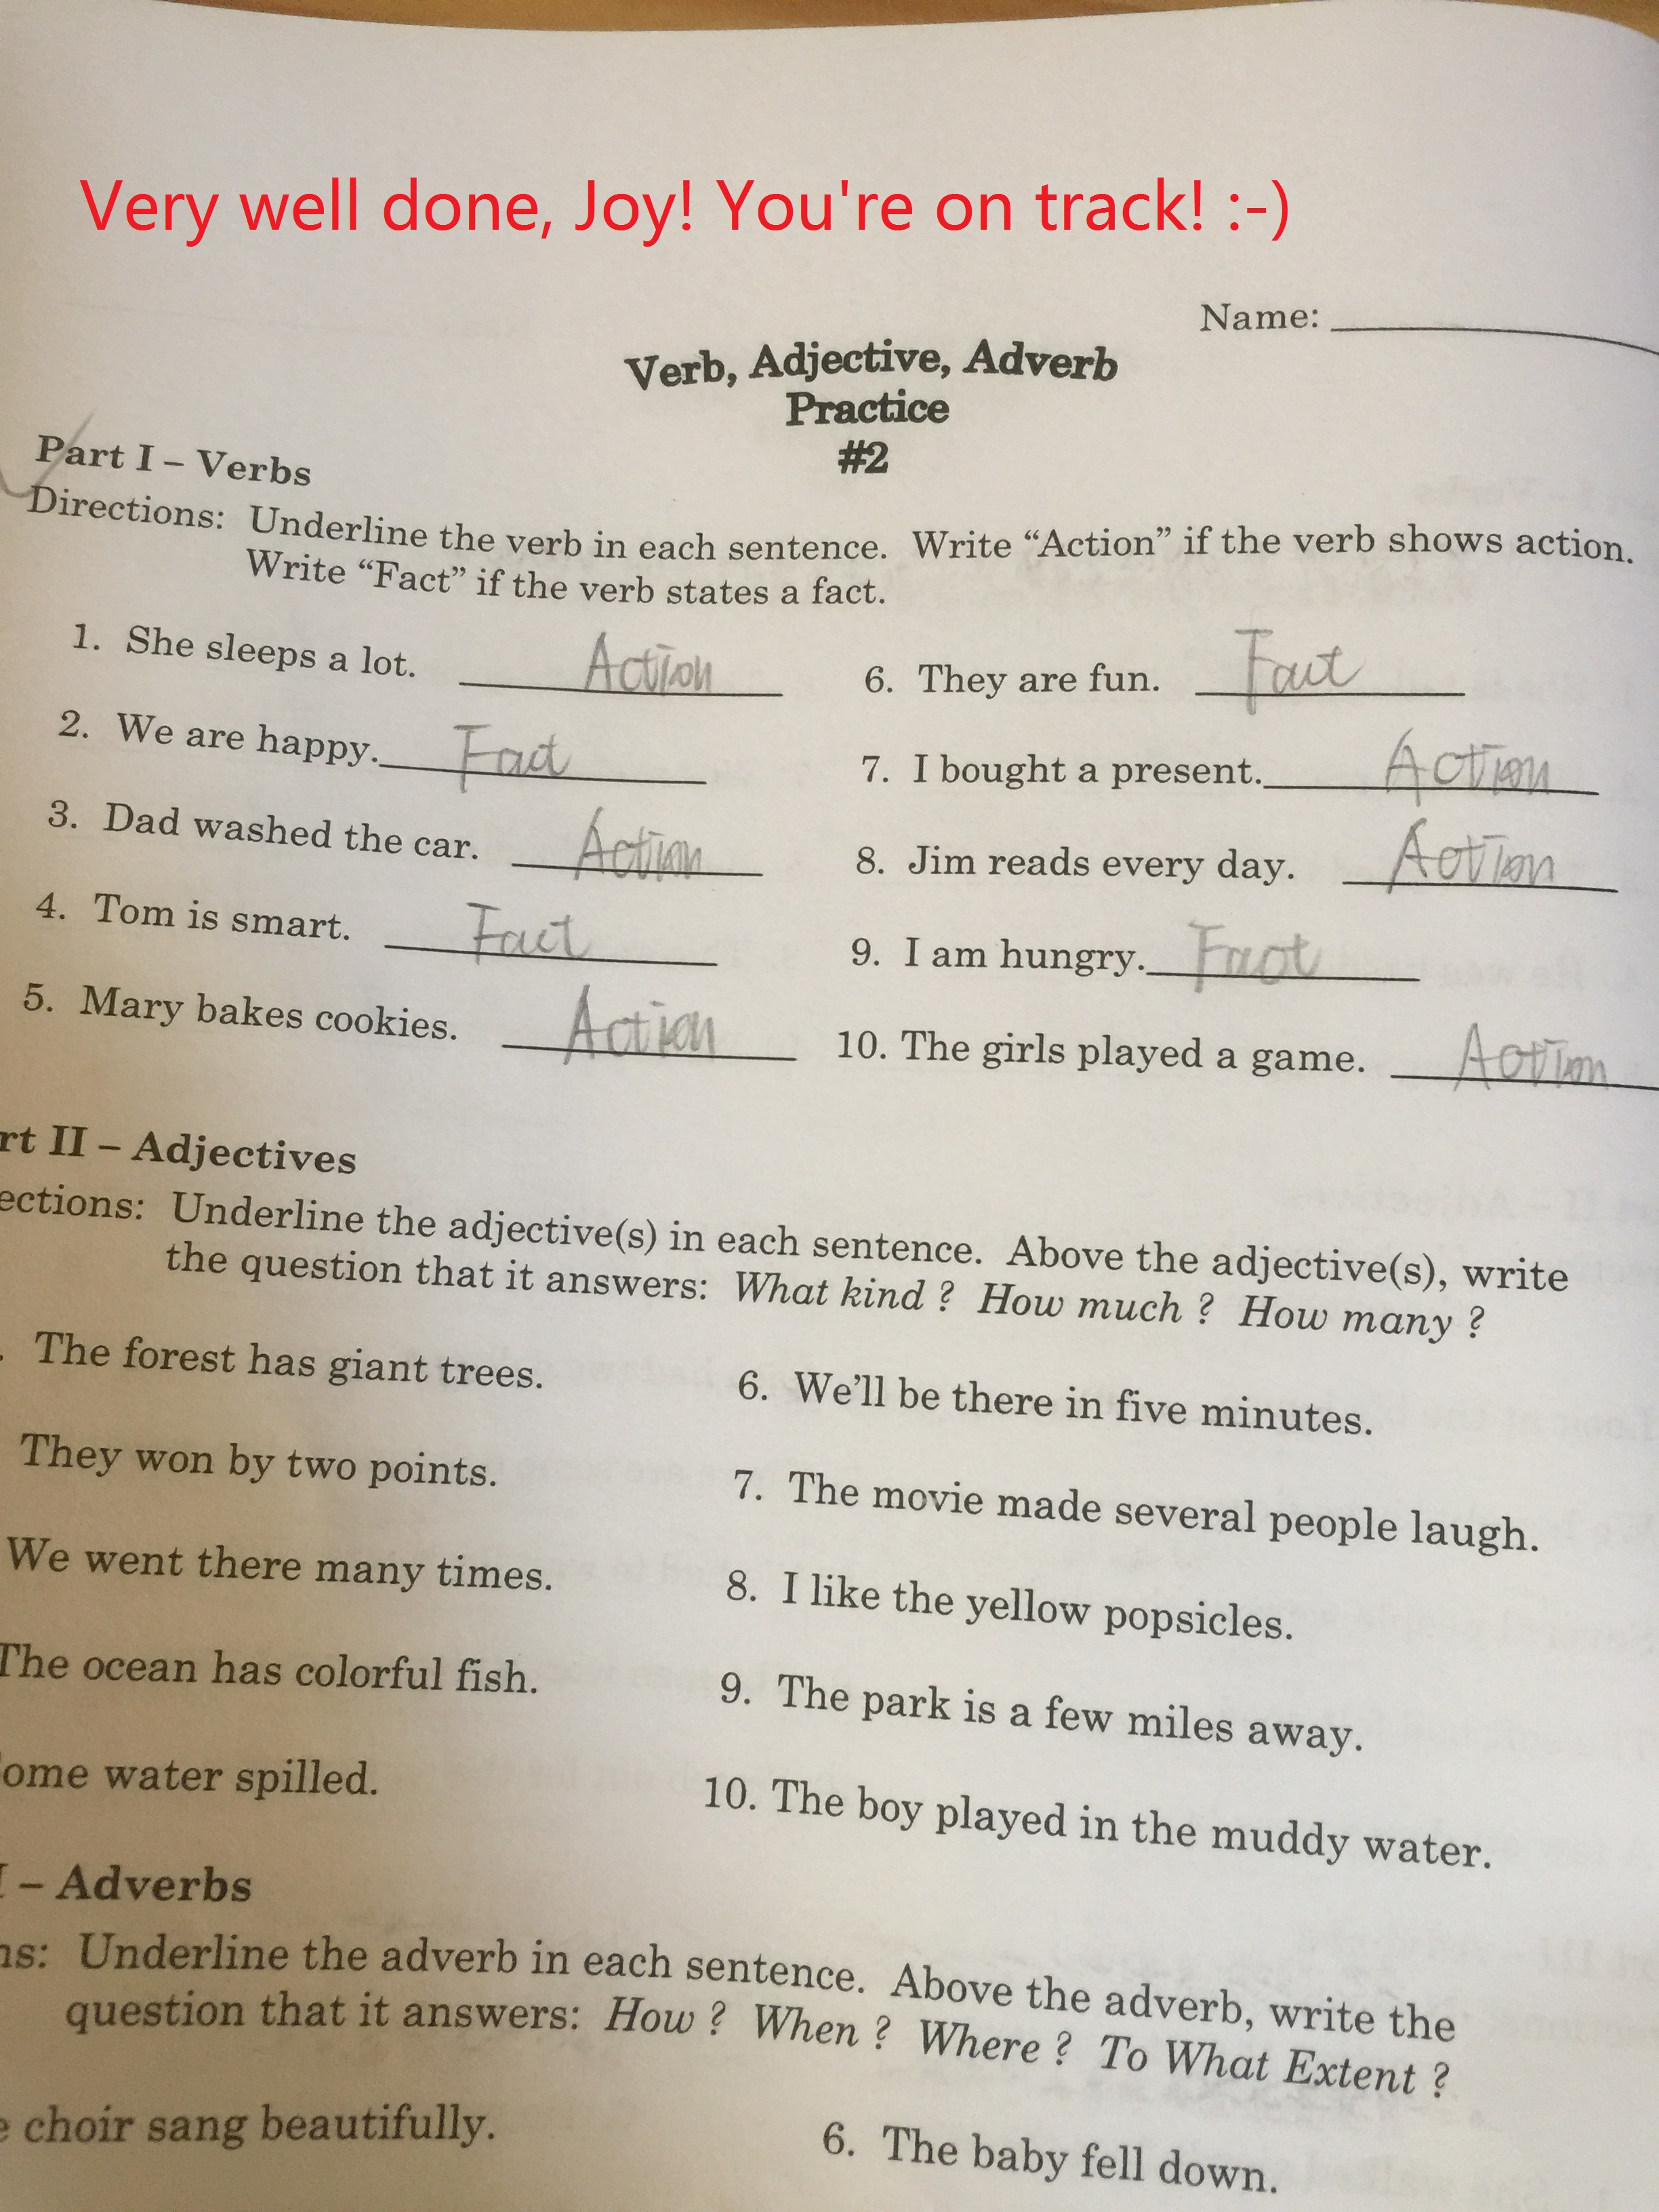 Very well done, Joy! You're on track! :-)
Name:
Verb, Adjective, Adverb
Practice
#2
Part I – Verbs
Directions: Underline the verb in each sentence. Write “Action” if the verb shows action.
Write “Fact” if the verb states a fact.
1. She sleeps a lot. Action
2. We are happy. Fact
3. Dad washed the car. Action
4. Tom is smart. Fact
5. Mary bakes cookies. Action
6. They are fun. Fact
7. I bought a present. Action
8. Jim reads every day. Action
9. I am hungry. Fact
10. The girls played a game. Action
rt II – Adjectives
ections: Underline the adjective(s) in each sentence. Above the adjective(s), write
the question that it answers: What kind ? How much ? How many ?
. The forest has giant trees.
They won by two points.
We went there many times.
The ocean has colorful fish.
ome water spilled.
6. We'll be there in five minutes.
7. The movie made several people laugh.
8. I like the yellow popsicles.
9. The park is a few miles away.
10. The boy played in the muddy water.
I – Adverbs
ns: Underline the adverb in each sentence. Above the adverb, write the
question that it answers: How ? When ? Where ? To What Extent ?
e choir sang beautifully.
6. The baby fell down.